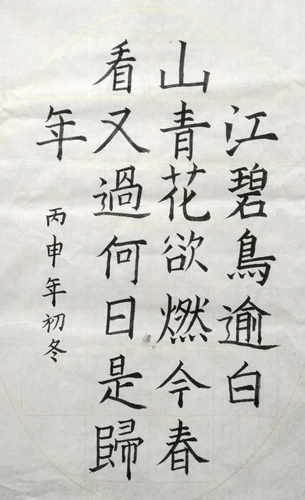 江碧鳥逾白
山青花欲燃今春
看又過何日是歸
年
丙申年初冬